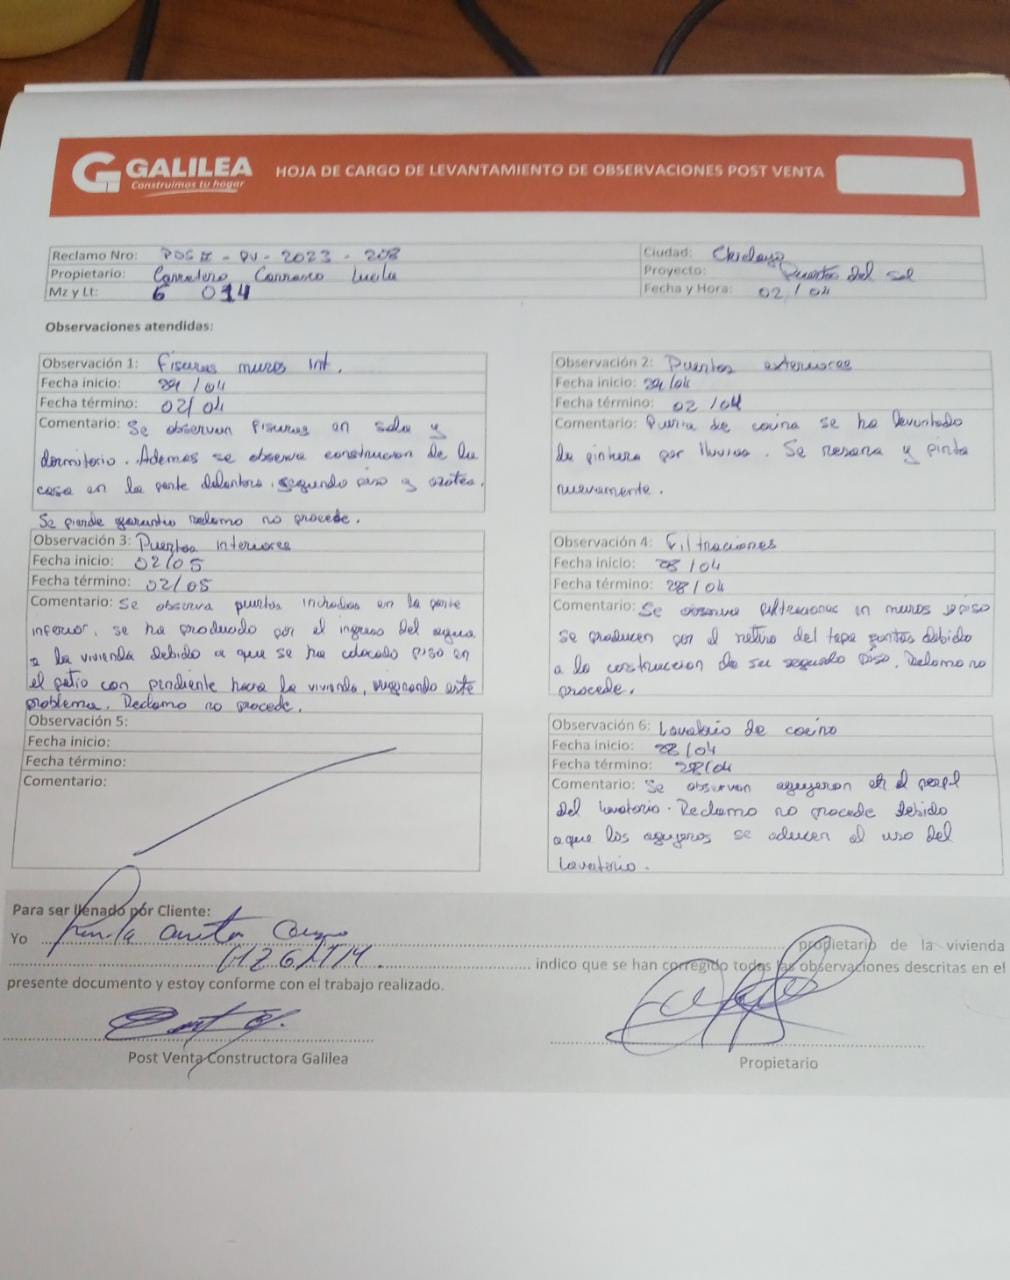 GALILEA
Construimos tu hogar
HOJA DE CARGO DE LEVANTAMIENTO DE OBSERVACIONES POST VENTA
Reclamo Nro: PDS II - PV - 2023 - 208
Propietario: Carretero Carrasco Lucila
Mz y Lt: G 014
Ciudad: Chiclayo
Proyecto: Puertas del sol
Fecha y Hora: 02 / 04
Observaciones atendidas:
Observación 1: Fisuras muros int.
Fecha inicio: /04
Fecha término: 02/04
Comentario: Se observan fisuras en sala y
dormitorio. Ademas se observa construccion de la
casa en la parte delantera, segundo piso y azotea.
Se pierde garantia reclamo no procede.
Observación 2: Puertas exteriores
Fecha inicio: /04
Fecha término: 02 /04
Comentario: Puerta de cocina se ha levantado
la pintura por lluvias. Se resana y pinta
nuevamente.
Observación 3: Puertas interiores
Fecha inicio: 02/05
Fecha término: 02/05
Comentario: Se observa puertas inchadas en la parte
inferior, se ha producido por el ingreso del agua
a la vivienda debido a que se ha colocado piso en
el patio con pendiente hacia la vivienda, originando este
problema. Reclamo no procede.
Observación 4: Filtraciones
Fecha inicio: 28 /04
Fecha término: 28/04
Comentario: Se observa filtraciones en muros 1º piso
se producen por el retiro del tapa puntos debido
a la construccion de su segundo piso. Reclamo no
procede.
Observación 5:
Fecha inicio:
Fecha término:
Comentario:
Observación 6: Lavatorio de cocina
Fecha inicio: 28 /04
Fecha término: 28/04
Comentario: Se observan agujeron en el
del lavatorio. Reclamo no procede debido
a que los agujeros se aducen al uso del
lavatorio.
Para ser llenado por Cliente:
Yo propietario de la vivienda
indico que se han corregido todas las observaciones descritas en el
presente documento y estoy conforme con el trabajo realizado.
Post Venta Constructora Galilea
Propietario